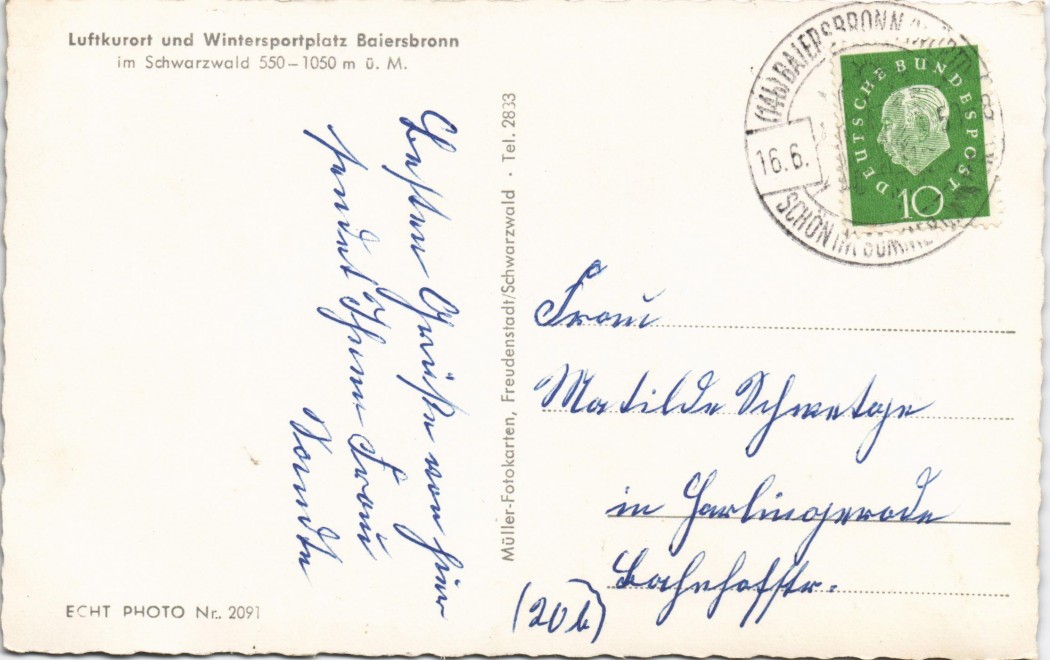 Luftkurort und Wintersportplatz Baiersbronn
im Schwarzwald 550–1050 m ü. M.
Besten Grüße von hier
sendet Ihnen Frau
ECHT PHOTO Nr.. 2091
Müller-Fotokarten, Freudenstadt/Schwarzwald · Tel. 2833
(14b) BAIERSBRONN
16.6.
SCHÖN IM SOMMER
DEUTSCHE BUNDESPOST
10
Frau
Matilde
in Harlingerode
Bahnhofstr.
(20b)